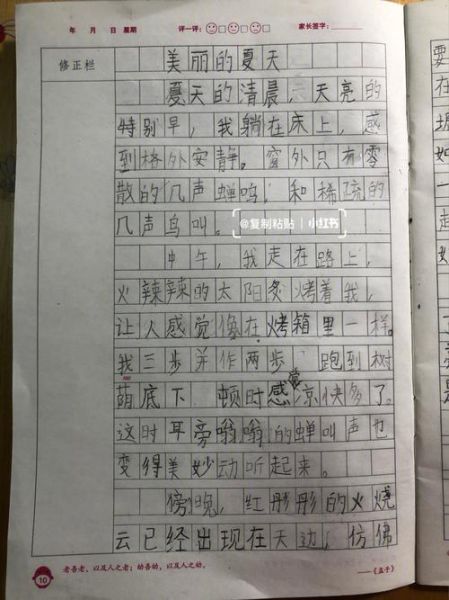 年 月 日 星期 评一评: 家长签字:
修正栏
美丽的夏天
夏天的清晨,天亮的
特别早,我躺在床上,感
到格外安静。窗外只有零
散的几声蝉鸣,和稀疏的
几声鸟叫。
@复制粘贴 | 小红书
中午,我走在路上,
火辣辣的太阳炙烤着我,
让人感觉像在烤箱里一样。
我三步并作两步,跑到树
荫底下,顿时感觉凉快多了。
这时耳旁嗡嗡的蝉叫声也
变得美妙动听起来。
傍晚,红彤彤的火烧
云已经出现在天边,仿佛
10
老吾老,以及人之老;幼吾幼,以及人之幼。
——《孟子》
要
在
如
一